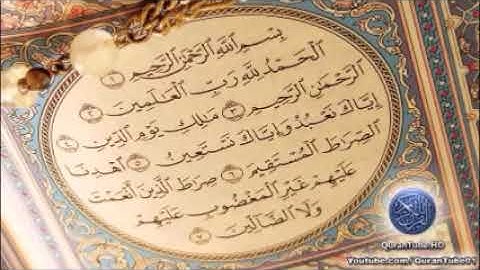 بِسْمِ ٱللَّهِ ٱلرَّحْمَٰنِ ٱلرَّحِيمِ ١
ٱلْحَمْدُ لِلَّهِ رَبِّ ٱلْعَٰلَمِينَ ٢
ٱلرَّحْمَٰنِ ٱلرَّحِيمِ ٣ مَٰلِكِ يَوْمِ ٱلدِّينِ ٤
إِيَّاكَ نَعْبُدُ وَإِيَّاكَ نَسْتَعِينُ ٥ ٱهْدِنَا
ٱلصِّرَٰطَ ٱلْمُسْتَقِيمَ ٦ صِرَٰطَ ٱلَّذِينَ أَنْعَمْتَ
عَلَيْهِمْ غَيْرِ ٱلْمَغْضُوبِ عَلَيْهِمْ
وَلَا ٱلضَّآلِّينَ ٧
QuranTube HD
Youtube.com/QuranTube01